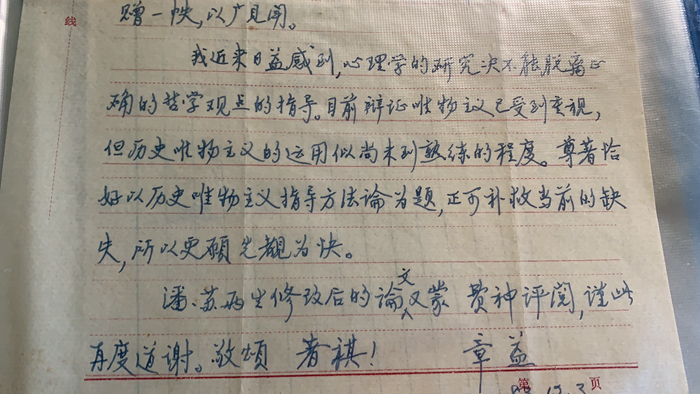 赠一帙,以广见闻。
线
我近来日益感到,心理学的研究决不能脱离正
确的哲学观点的指导。目前辩证唯物主义已受到重视,
但历史唯物主义的运用似尚未到熟练的程度。尊著恰
好以历史唯物主义指导方法论为题,正可补救当前的缺
失,所以更愿先睹为快。
潘、苏两生修改后的论文又蒙 费神评阅,谨此
再度道谢。敬颂 著祺!
章益
第 页